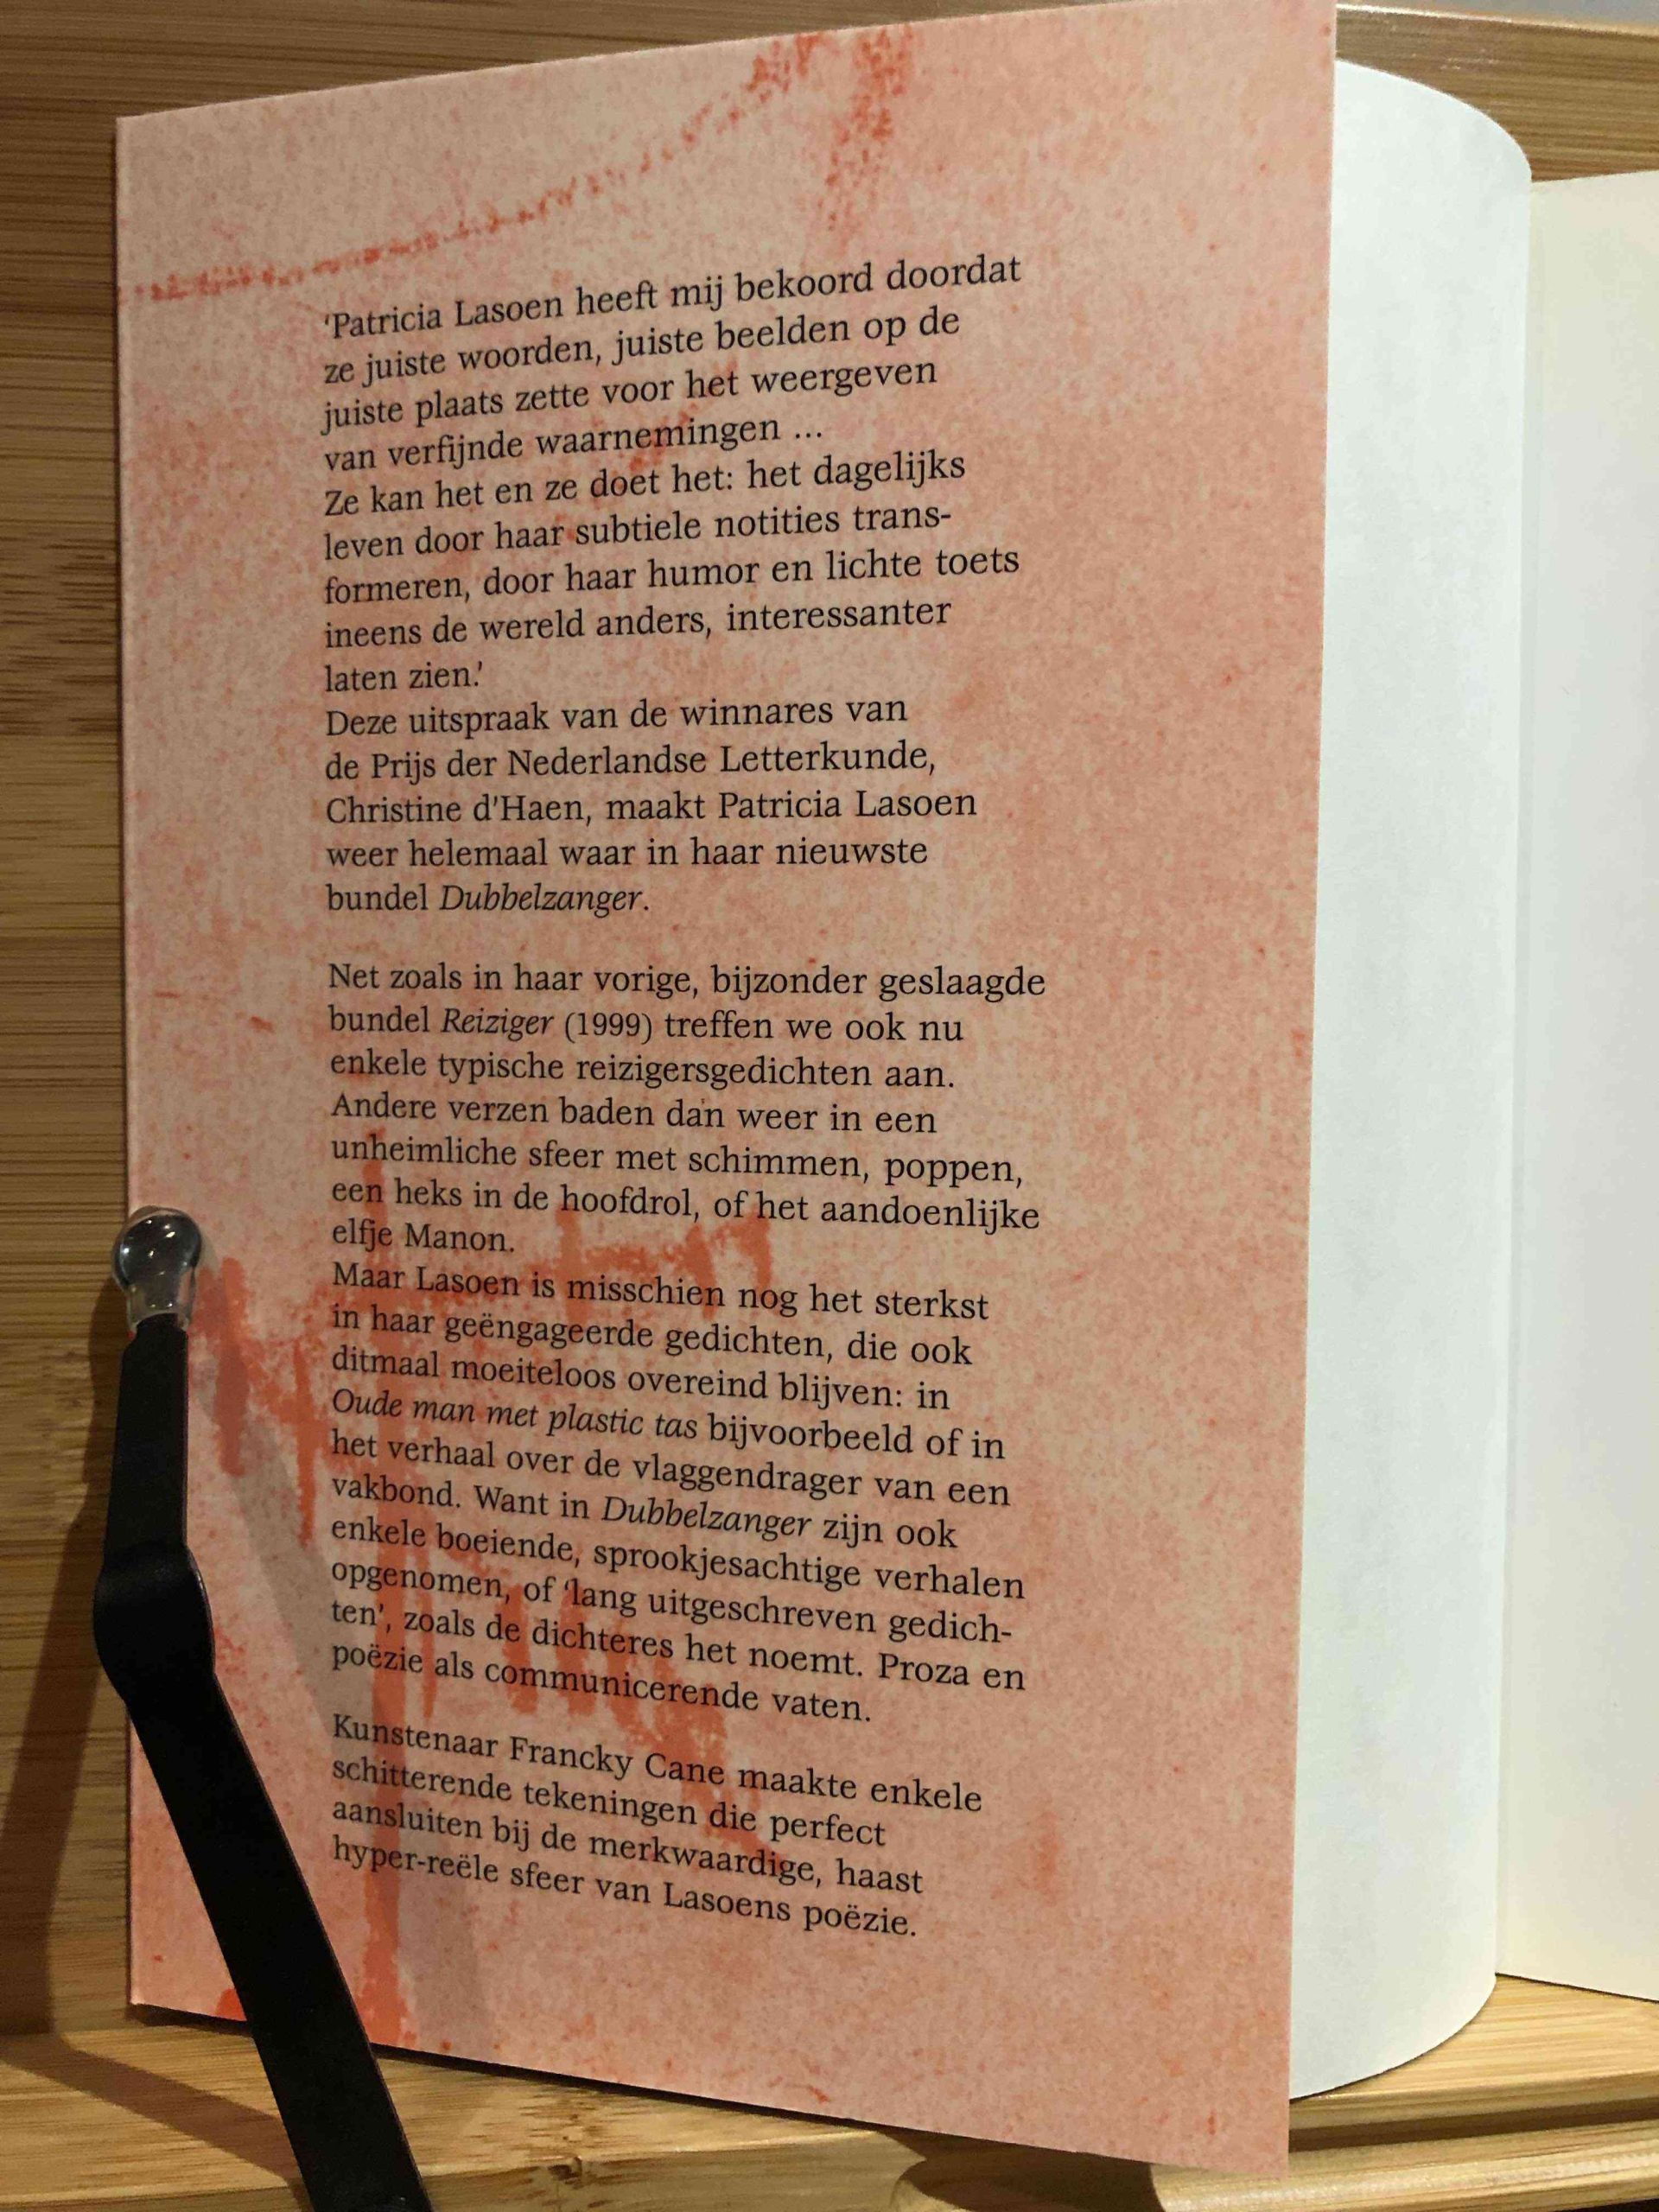 ‘Patricia Lasoen heeft mij bekoord doordat
ze juiste woorden, juiste beelden op de
juiste plaats zette voor het weergeven
van verfijnde waarnemingen ...
Ze kan het en ze doet het: het dagelijks
leven door haar subtiele notities trans-
formeren, door haar humor en lichte toets
ineens de wereld anders, interessanter
laten zien.’
Deze uitspraak van de winnares van
de Prijs der Nederlandse Letterkunde,
Christine d'Haen, maakt Patricia Lasoen
weer helemaal waar in haar nieuwste
bundel Dubbelzanger.
Net zoals in haar vorige, bijzonder geslaagde
bundel Reiziger (1999) treffen we ook nu
enkele typische reizigersgedichten aan.
Andere verzen baden dan weer in een
unheimliche sfeer met schimmen, poppen,
een heks in de hoofdrol, of het aandoenlijke
elfje Manon.
Maar Lasoen is misschien nog het sterkst
in haar geëngageerde gedichten, die ook
ditmaal moeiteloos overeind blijven: in
Oude man met plastic tas bijvoorbeeld of in
het verhaal over de vlaggendrager van een
vakbond. Want in Dubbelzanger zijn ook
enkele boeiende, sprookjesachtige verhalen
opgenomen, of ‘lang uitgeschreven gedich-
ten’, zoals de dichteres het noemt. Proza en
poëzie als communicerende vaten.
Kunstenaar Francky Cane maakte enkele
schitterende tekeningen die perfect
aansluiten bij de merkwaardige, haast
hyper-reële sfeer van Lasoens poëzie.